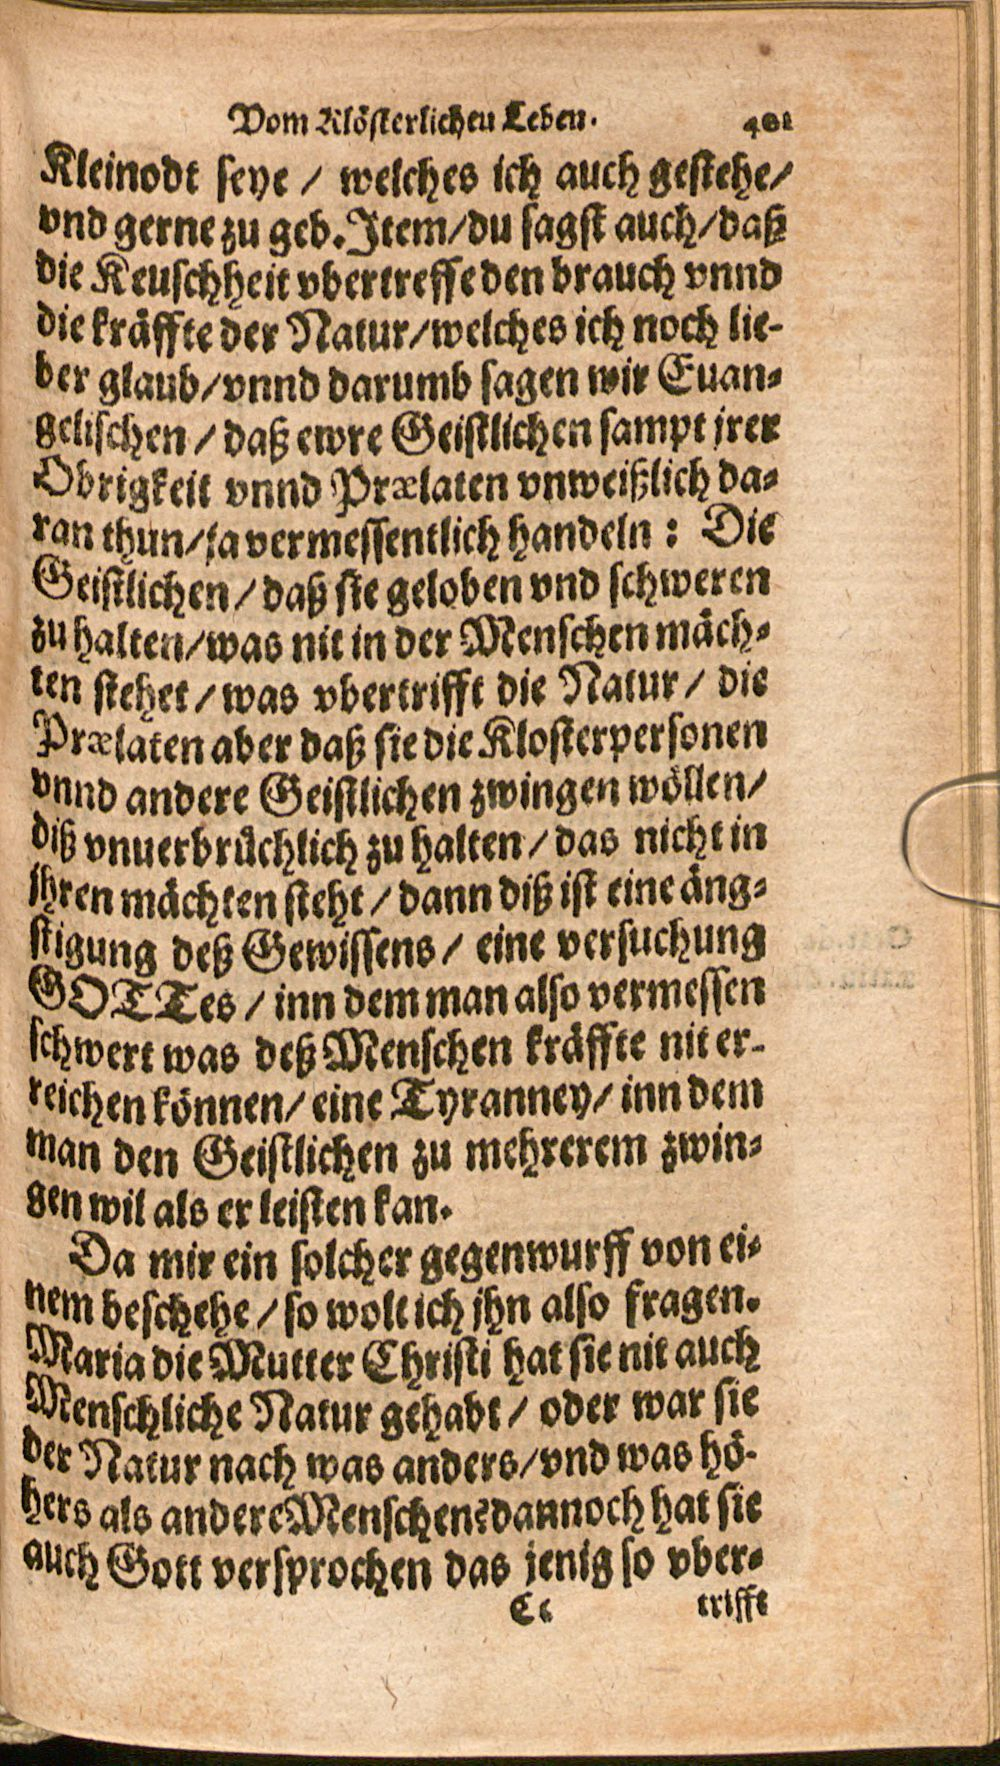 Vom Klösterlichen Leben. 401
Kleinodt seye / welches ich auch gestehe/
vnd gerne zu geb. Item/du sagst auch/daß
die Keuschheit vbertreffe den brauch vnnd
die kräffte der Natur/welches ich noch lie-
ber glaub/vnnd darumb sagen wir Euan-
gelischen / daß ewre Geistlichen sampt jrer
Obrigkeit vnnd Prælaten vnweißlich da-
ran thun/ja vermessentlich handeln : Die
Geistlichen / daß sie geloben vnd schweren
zu halten/was nit in der Menschen mäch-
ten stehet / was vbertrifft die Natur / die
Prælaten aber daß sie die Klosterpersonen
vnnd andere Geistlichen zwingen wöllen/
diß vnuerbrüchlich zu halten / das nicht in
jhren mächten steht / dann diß ist eine äng-
stigung deß Gewissens / eine versuchung
GOTTes / inn dem man also vermessen
schwert was deß Menschen kräffte nit er-
reichen können/ eine Tyranney/ inn dem
man den Geistlichen zu mehrerem zwin-
gen wil als er leisten kan.
Da mir ein solcher gegenwurff von ei-
nem beschehe / so wolt ich jhn also fragen.
Maria die Mutter Christi hat sie nit auch
Menschliche Natur gehabt / oder war sie
der Natur nach was anders/vnd was hö-
hers als andere Menschen? dannoch hat sie
auch Gott versprochen das jenig so vber-
Cc trifft